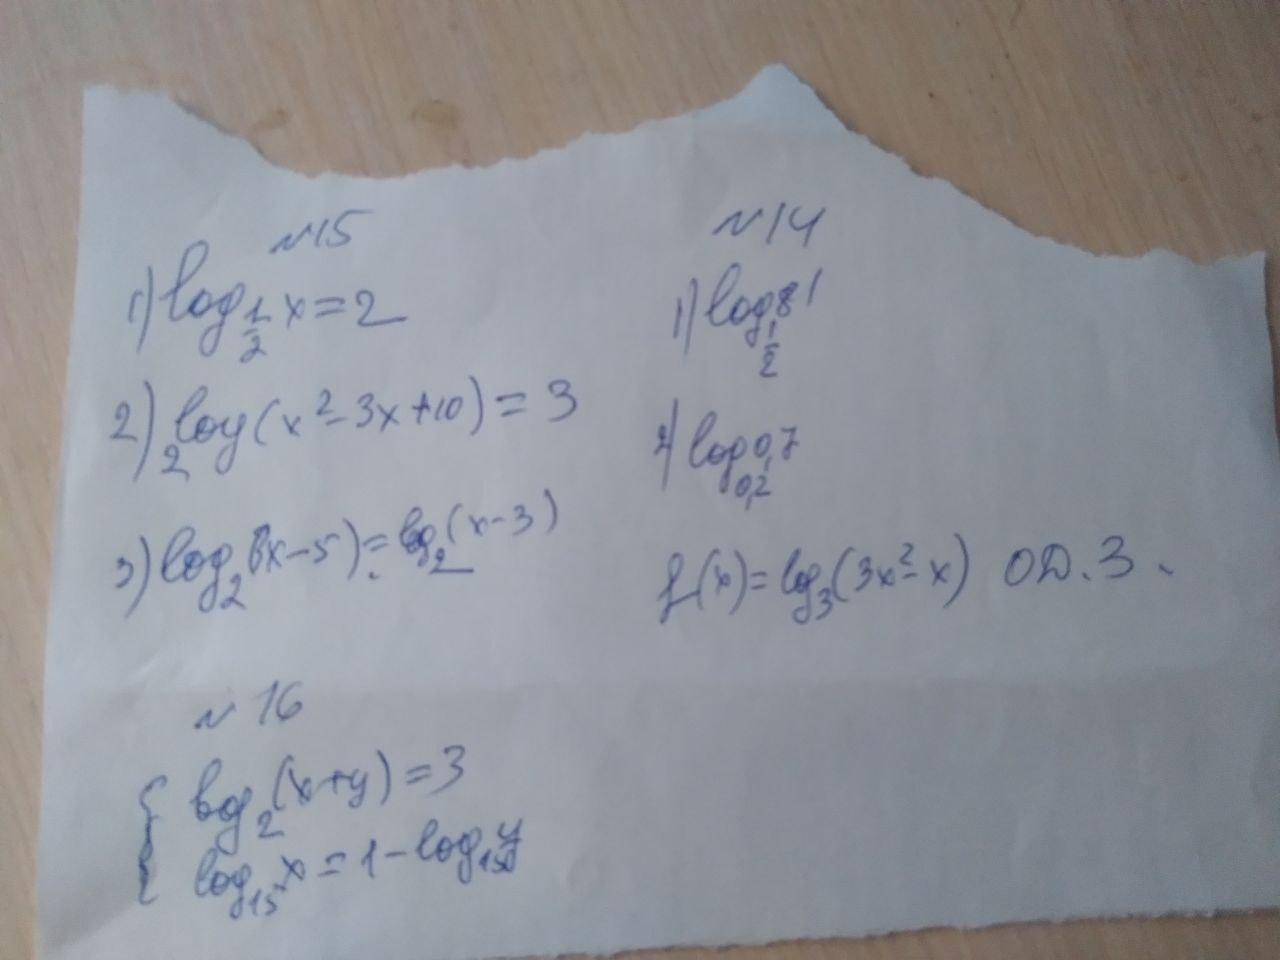 №15
1) log 1/2 x = 2
2) 2 log (x² - 3x + 10) = 3
3) log₂ (3x - 5) = log₂ (x - 3)
№14
1) log 1/2 81
2) log 0,2 0,7
f(x) = log₃ (3x² - x) ОД.З.
№16
{ log₂ (x + y) = 3
log₁₅ x = 1 - log₁₅ y